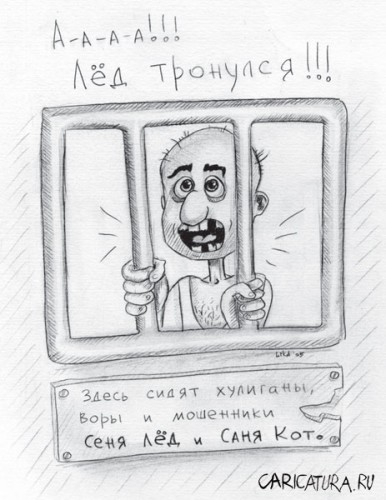 А-А-А-А!!!
Лёд тронулся!!!
LYKA '05
Здесь сидят хулиганы,
воры и мошенники
Сеня Лёд и Саня Кот.
CARICATURA.RU